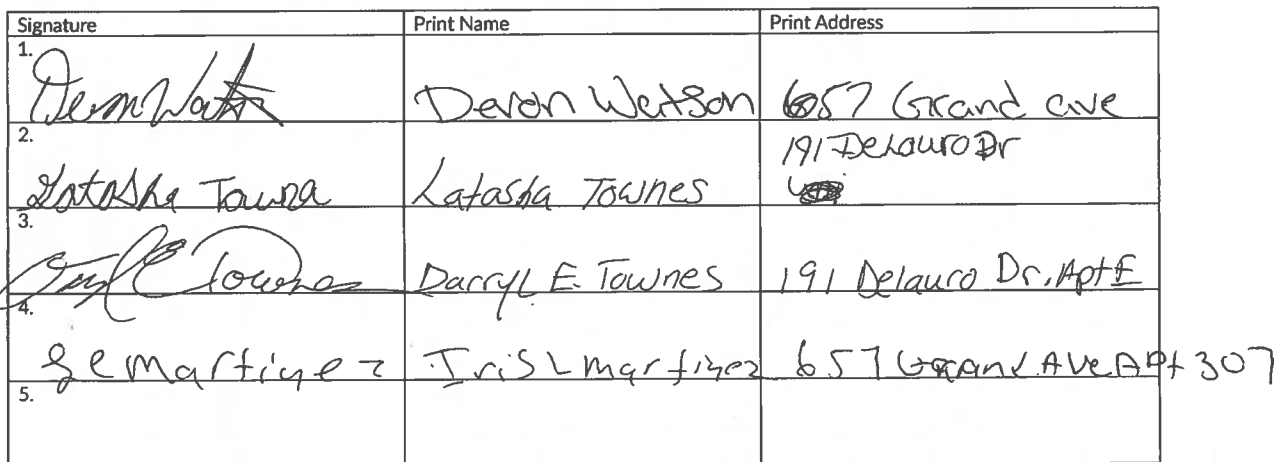 Signature Print Name Print Address
1. Devon Watson Devon Watson 657 Grand ave
2. 191 DeLauro Dr
Latasha Towns Latasha Townes
3. Darryl E Townes Darryl E. Townes 191 Delauro Dr, Apt E
4. Martinez Iris L martinez 657 Grand Ave APt 307
5.